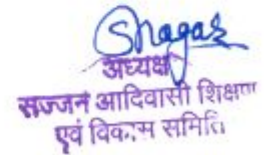 Snagar
अध्यक्ष
सज्जन आदिवासी शिक्षण
एवं विकास समिति